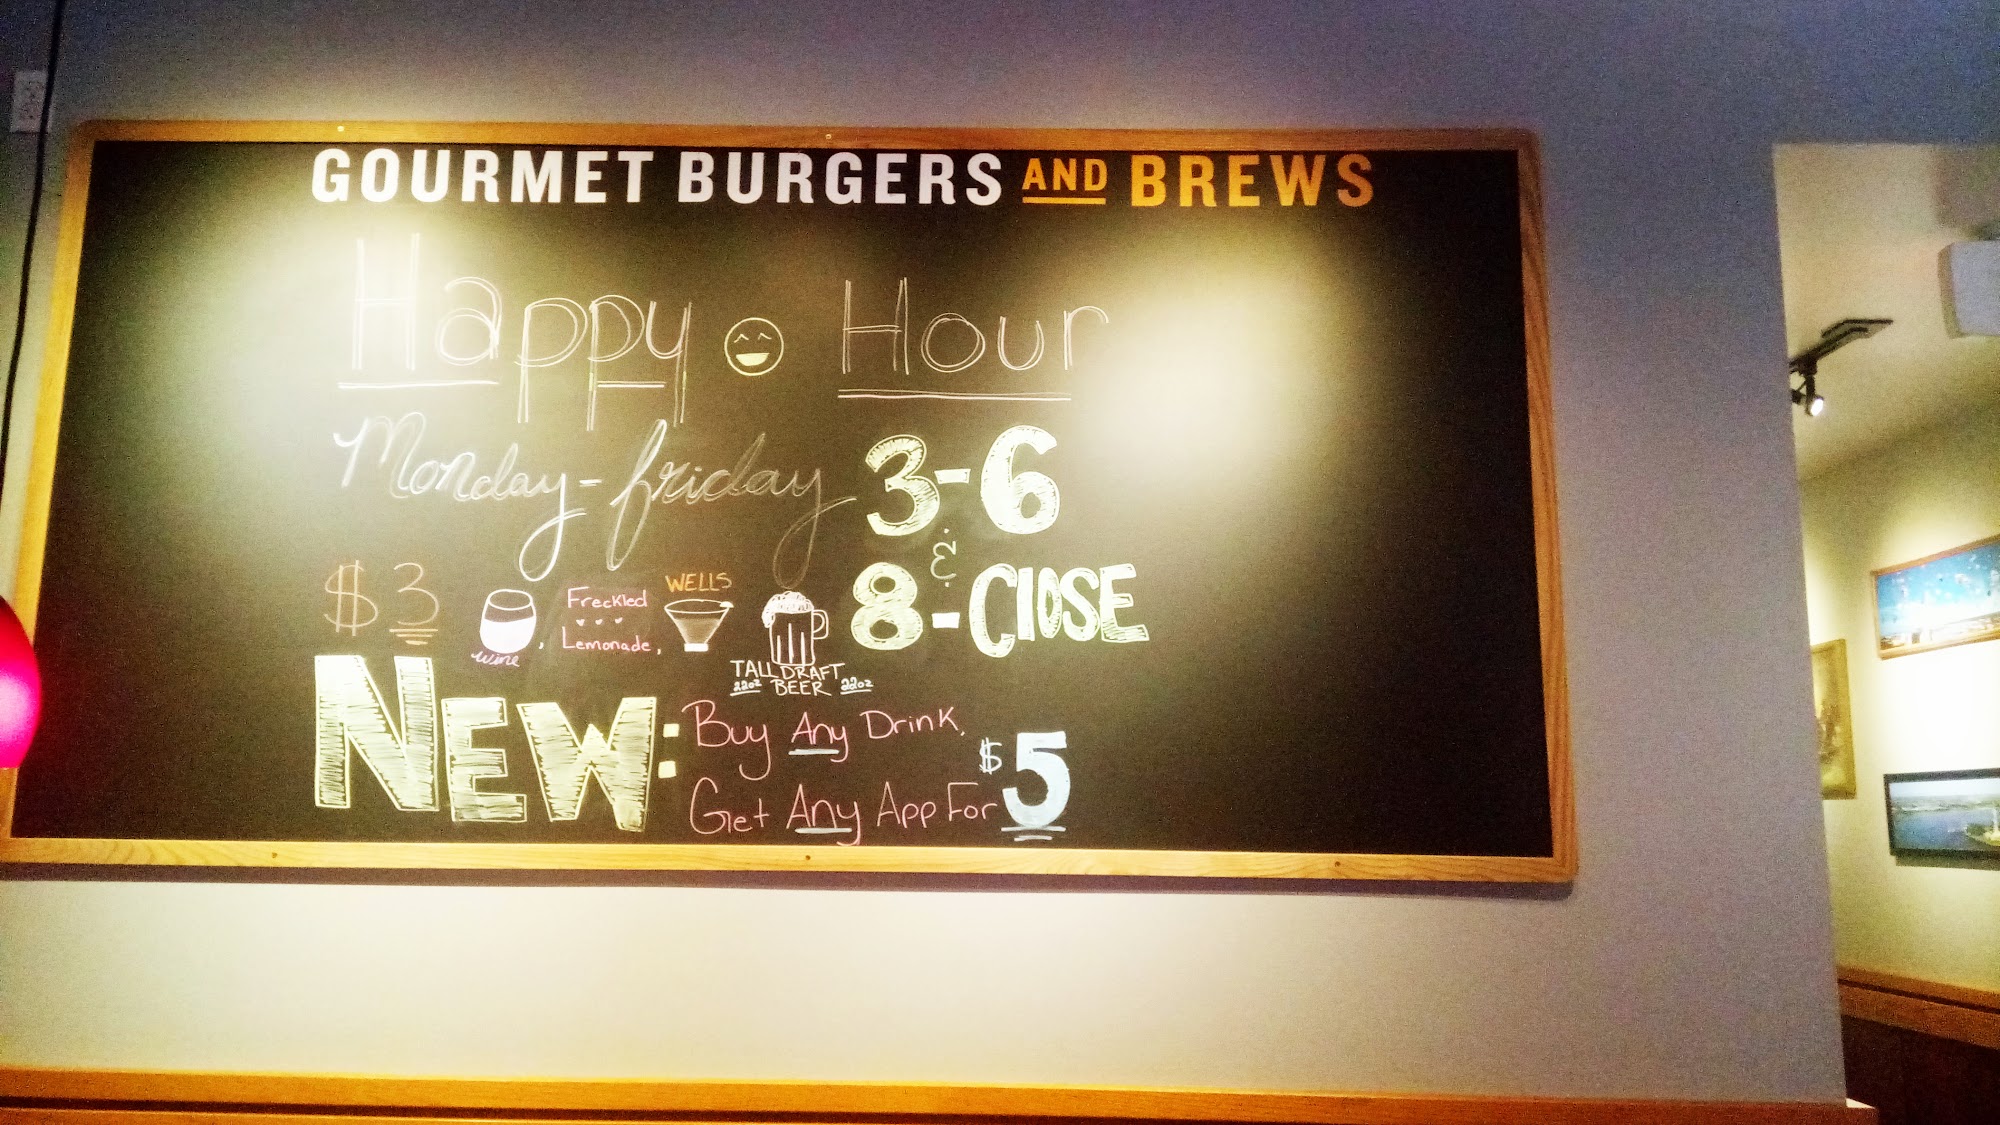 GOURMET BURGERS AND BREWS
Happy Hour
Monday-friday 3-6
&
8-CLOSE
$3 wine, Freckled Lemonade, WELLS
TALL DRAFT
22oz BEER 22oz
NEW: Buy Any Drink,
Get Any App For $5